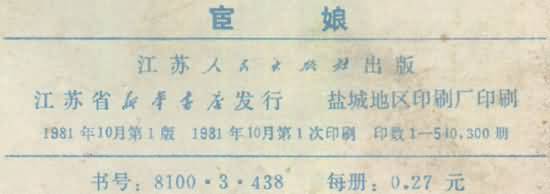 宦娘
江苏人民出版社出版
江苏省新华书店发行 盐城地区印刷厂印刷
1981年10月第1版 1981年10月第1次印刷 印数1—540,300册
书号：8100·3·438 每册：0.27元